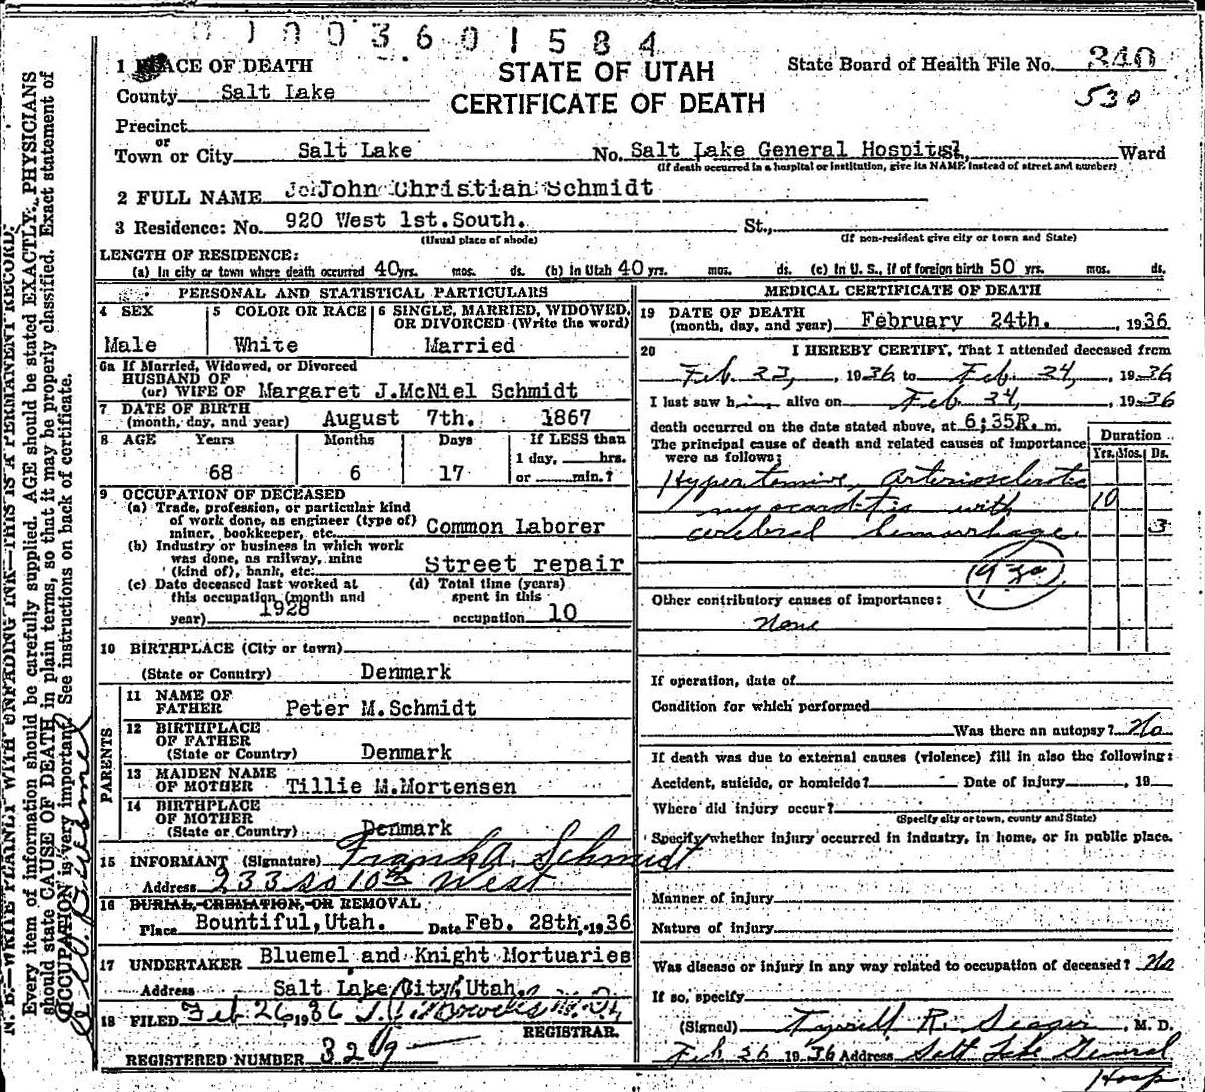 3601584
1 PLACE OF DEATH
STATE OF UTAH
CERTIFICATE OF DEATH
State Board of Health File No. 340
530
County Salt Lake
Precinct
or
Town or City Salt Lake No. Salt Lake General Hospital, Ward
(If death occurred in a hospital or institution, give its NAME instead of street and number)
2 FULL NAME John Christian Schmidt
3 Residence: No. 920 West 1st. South. St.,
(Usual place of abode) (If non-resident give city or town and State)
LENGTH OF RESIDENCE:
(a) In city or town where death occurred 40 yrs. mos. ds. (b) in Utah 40 yrs. mos. ds. (c) In U. S., if of foreign birth 50 yrs. mos. ds.
PERSONAL AND STATISTICAL PARTICULARS
4 SEX
Male
5 COLOR OR RACE
White
6 SINGLE, MARRIED, WIDOWED,
OR DIVORCED (Write the word)
Married
6a If Married, Widowed, or Divorced
HUSBAND OF
(or) WIFE OF Margaret J.McNiel Schmidt
7 DATE OF BIRTH
(month, day, and year) August 7th. 1867
8 AGE Years Months Days If LESS than
1 day, hrs.
68 6 17 or min.?
9 OCCUPATION OF DECEASED
(a) Trade, profession, or particular kind
of work done, as engineer (type of)
miner, bookkeeper, etc. Common Laborer
(b) Industry or business in which work
was done, as railway, mine
(kind of), bank, etc. Street repair
(c) Date deceased last worked at
this occupation (month and
year) 1928
(d) Total time (years)
spent in this
occupation 10
10 BIRTHPLACE (City or town)
(State or Country) Denmark
PARENTS
11 NAME OF
FATHER Peter M.Schmidt
12 BIRTHPLACE
OF FATHER
(State or Country) Denmark
13 MAIDEN NAME
OF MOTHER Tillie M.Mortensen
14 BIRTHPLACE
OF MOTHER
(State or Country) Denmark
15 INFORMANT (Signature) Frank A. Schmidt
Address 233 so 10th West
16 BURIAL, CREMATION, OR REMOVAL
Place Bountiful, Utah. Date Feb. 28th, 1936
17 UNDERTAKER Bluemel and Knight Mortuaries
Address Salt Lake City, Utah.
18 FILED Feb 26, 1936
REGISTRAR.
REGISTERED NUMBER 329
MEDICAL CERTIFICATE OF DEATH
19 DATE OF DEATH
(month, day, and year) February 24th. , 1936
20 I HEREBY CERTIFY, That I attended deceased from
Feb. 23, , 1936 to Feb. 24, , 1936
I last saw him alive on Feb 24, , 1936
death occurred on the date stated above, at 6;35P. m.
The principal cause of death and related causes of importance
were as follows:
Duration
Yrs. Mos. Ds.
Hypertensive, arteriosclerotic
myocarditis with 10
cerebral hemorrhage. 3
Other contributory causes of importance:
None
If operation, date of
Condition for which performed
Was there an autopsy? No
If death was due to external causes (violence) fill in also the following:
Accident, suicide, or homicide? Date of injury , 19
Where did injury occur?
(Specify city or town, county and State)
Specify whether injury occurred in industry, in home, or in public place.
Manner of injury
Nature of injury
Was disease or injury in any way related to occupation of deceased? No
If so, specify
(Signed) Tyrrell R. Seager , M. D.
Feb 26 1936 Address Salt Lake General
Hosp
N. B.—WRITE PLAINLY WITH UNFADING INK—THIS IS A PERMANENT RECORD.
Every item of information should be carefully supplied. AGE should be stated EXACTLY. PHYSICIANS
should state CAUSE OF DEATH in plain terms, so that it may be properly classified. Exact statement of
OCCUPATION is very important. See instructions on back of certificate.